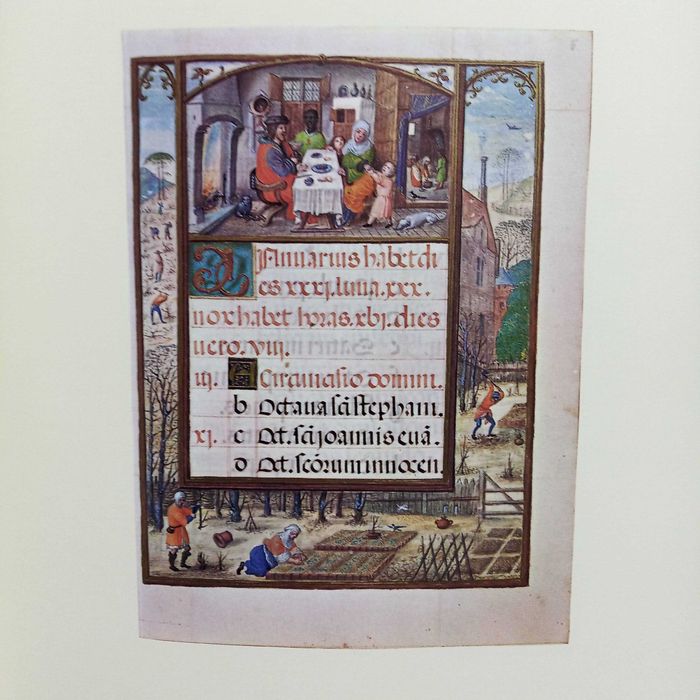 Januarius habet di
es xxxi. luna. xxx.
nox habet horas. xbj. dies
uero. viii.
iij. A Circuncisio domini.
b Octaua sci stephani.
xi. c Oct. sci joannis euā.
d Oct. scōrum innocen.